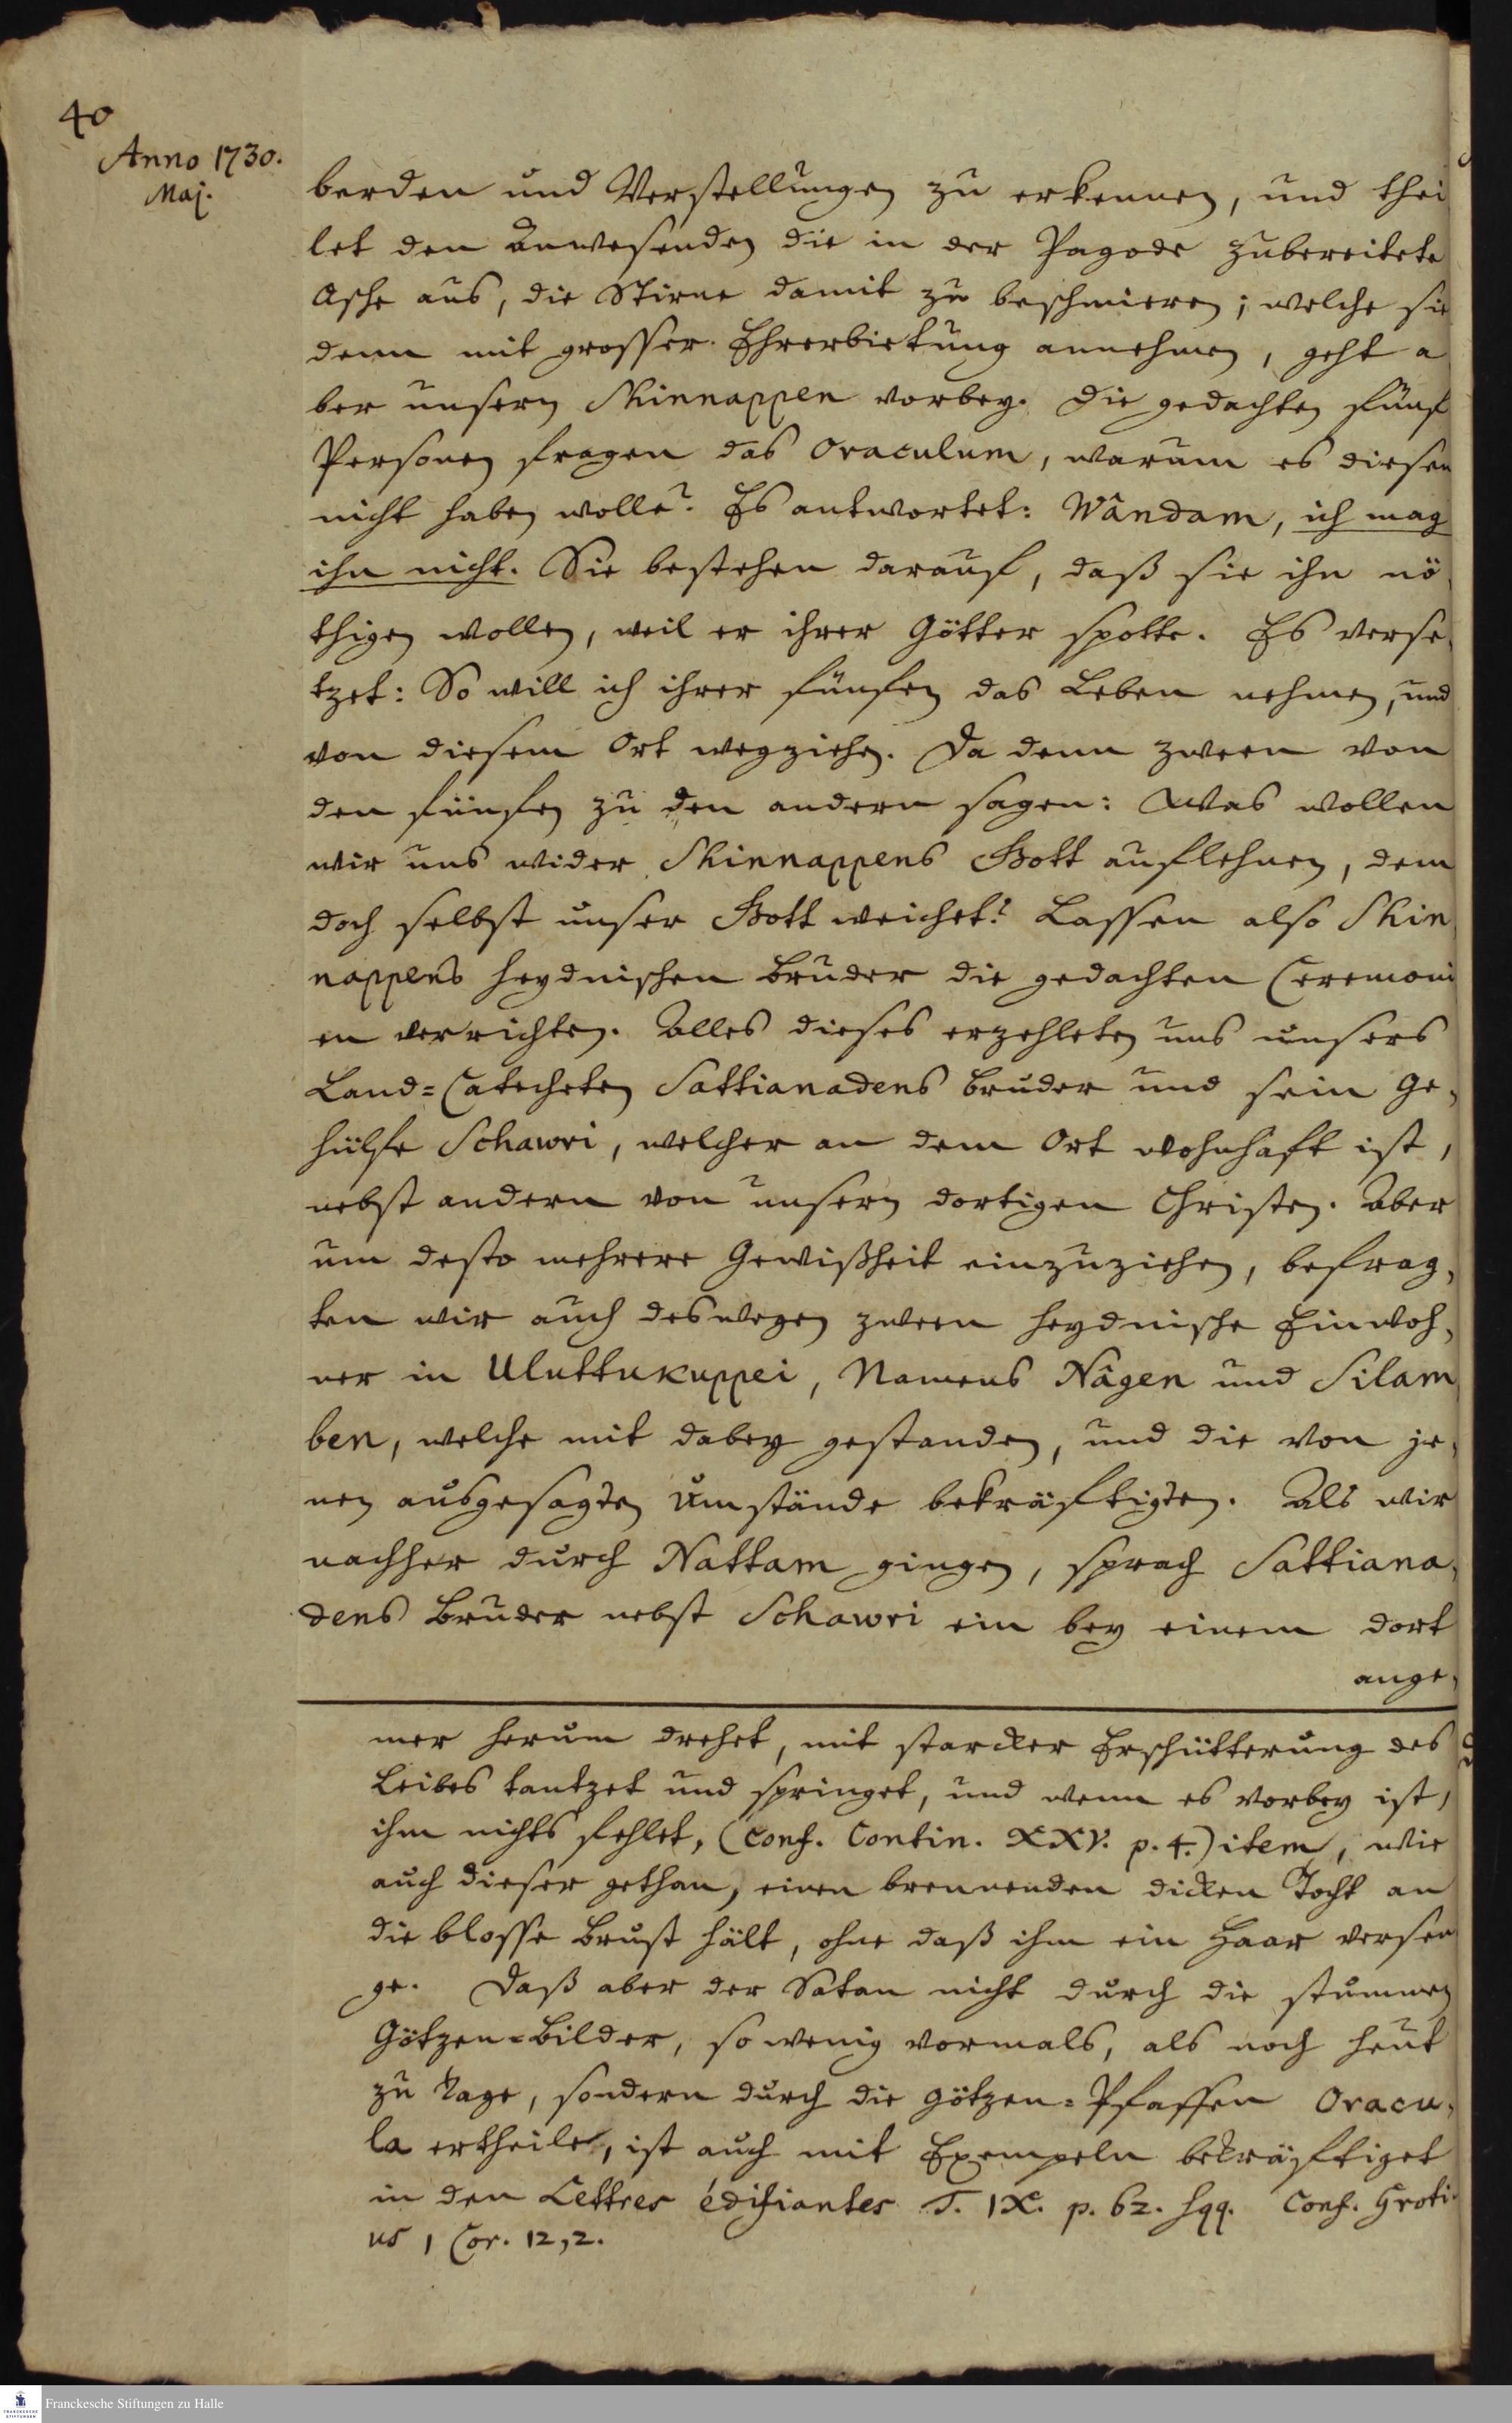 40
Anno 1730.
Maj.
berden und Verstellungen zu erkennen, und thei
let den Anwesenden die in der Pagode zubereitete
Asche aus, die Stirne damit zu beschmieren; welche sie
denn mit grosser Ehrerbietung annehmen, geht a
ber unsern Skinnappen vorbey. Die gedachten fünf
Personen fragen das Oraculum, warum es diesen
nicht haben wolle? Es antwortet: Wândam, ich mag
ihn nicht. Sie bestehen darauf, daß sie ihn nö
thigen wollen, weil er ihrer Götter spotte. Es verse,
tzet: So will ich ihrer fünfen das Leben nehmen, und
von diesem Ort wegziehen. Da denn zween von
den fünfen zu den andern sagen: Was wollen
wir uns wider Skinnappens Gott auflehnen, dem
doch selbst unser Gott weichet? Lassen also Skin
nappens heydnischen Bruder die gedachten Ceremoni
en verrichten. Alles dieses erzehleten uns unsers
Land=Catecheten Sattianadens Bruder und sein Ge,
hülfe Schawri, welcher an dem Ort wohnhaft ist,
nebst andern von unsern dortigen Christen. Aber
um desto mehrere Gewißheit einzuziehen, befrag,
ten wir auch deswegen zween heydnische Einwoh,
ner in Uluttukuppei, Namens Nâgen und Silam
ben, welche mit dabey gestanden, und die von je,
nen ausgesagten Umstände bekräftigten. Als wir
nachher durch Nattam gingen, sprach Sattiana,
dens Bruder nebst Schawri ein bey einem dort
ange,
mer herum drehet, mit starcker Erschütterung des
Leibes tantzet und springet, und wenn es vorbey ist,
ihm nichts fehlet, (conf. Contin. XXV. p. 4.) item, wie
auch dieser gethan, einen brennenden dicken Tocht an
die blosse Brust hält, ohne daß ihm ein Haar versen
ge. Daß aber der Satan nicht durch die stummen
Götzen=Bilder, so wenig vormals, als noch heut
zu Tage, sondern durch die Götzen=Pfaffen Oracu,
la ertheile, ist auch mit Exempeln bekräftiget
in den Lettres édifiantes T. IX. p. 62. sqq. Conf. Groti
us 1 Cor. 12,2.
Franckesche Stiftungen zu Halle